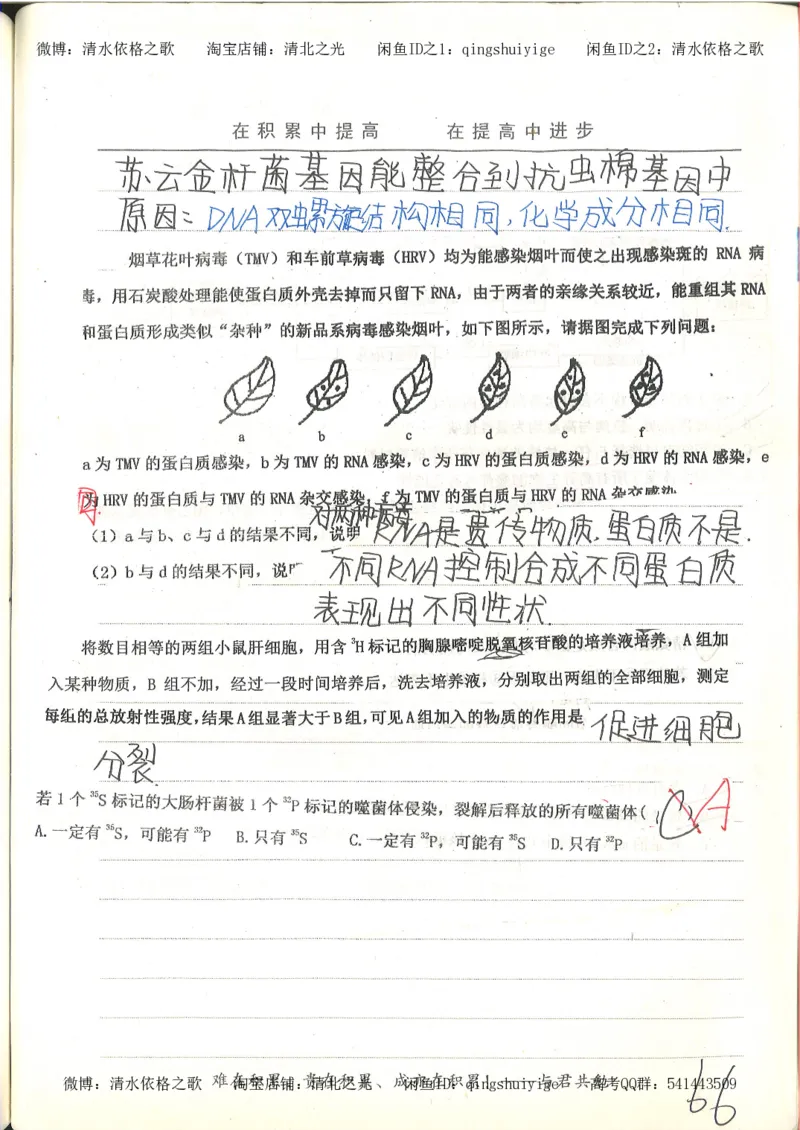 微博：清水依格之歌 淘宝店铺：清北之光 闲鱼ID之1：qingshuiyige 闲鱼ID之2：清水依格之歌
在积累中提高 在提高中进步
苏云金杆菌基因能整合到抗虫棉基因中
原因：DNA双螺旋结构相同，化学成分相同.
烟草花叶病毒（TMV）和车前草病毒（HRV）均为能感染烟叶而使之出现感染斑的 RNA 病
毒，用石炭酸处理能使蛋白质外壳去掉而只留下 RNA，由于两者的亲缘关系较近，能重组其 RNA
和蛋白质形成类似“杂种”的新品系病毒感染烟叶，如下图所示，请据图完成下列问题：
a b c d e f
a 为 TMV 的蛋白质感染，b 为 TMV 的 RNA 感染，c 为 HRV 的蛋白质感染，d 为 HRV 的 RNA 感染，e
为 HRV 的蛋白质与 TMV 的 RNA 杂交感染，f 为 TMV 的蛋白质与 HRV 的 RNA 杂交感染.
对两种病毒
（1）a 与 b、c 与 d 的结果不同，说明 RNA是遗传物质.蛋白质不是.
（2）b 与 d 的结果不同，说 不同RNA控制合成不同蛋白质
表现出不同性状.
将数目相等的两组小鼠肝细胞，用含 ³H 标记的胸腺嘧啶脱氧核苷酸的培养液培养，A 组加
入某种物质，B 组不加，经过一段时间培养后，洗去培养液，分别取出两组的全部细胞，测定
每组的总放射性强度，结果 A 组显著大于 B 组，可见 A 组加入的物质的作用是 促进细胞
分裂
若 1 个 ³⁵S 标记的大肠杆菌被 1 个 ³²P 标记的噬菌体侵染，裂解后释放的所有噬菌体( C ) A
A.一定有 ³⁵S，可能有 ³²P B.只有 ³⁵S C.一定有 ³²P，可能有 ³⁵S D.只有 ³²P
微博：清水依格之歌 淘宝店铺：清北之光 闲鱼ID：qingshuiyige 高考QQ群：541443509
66